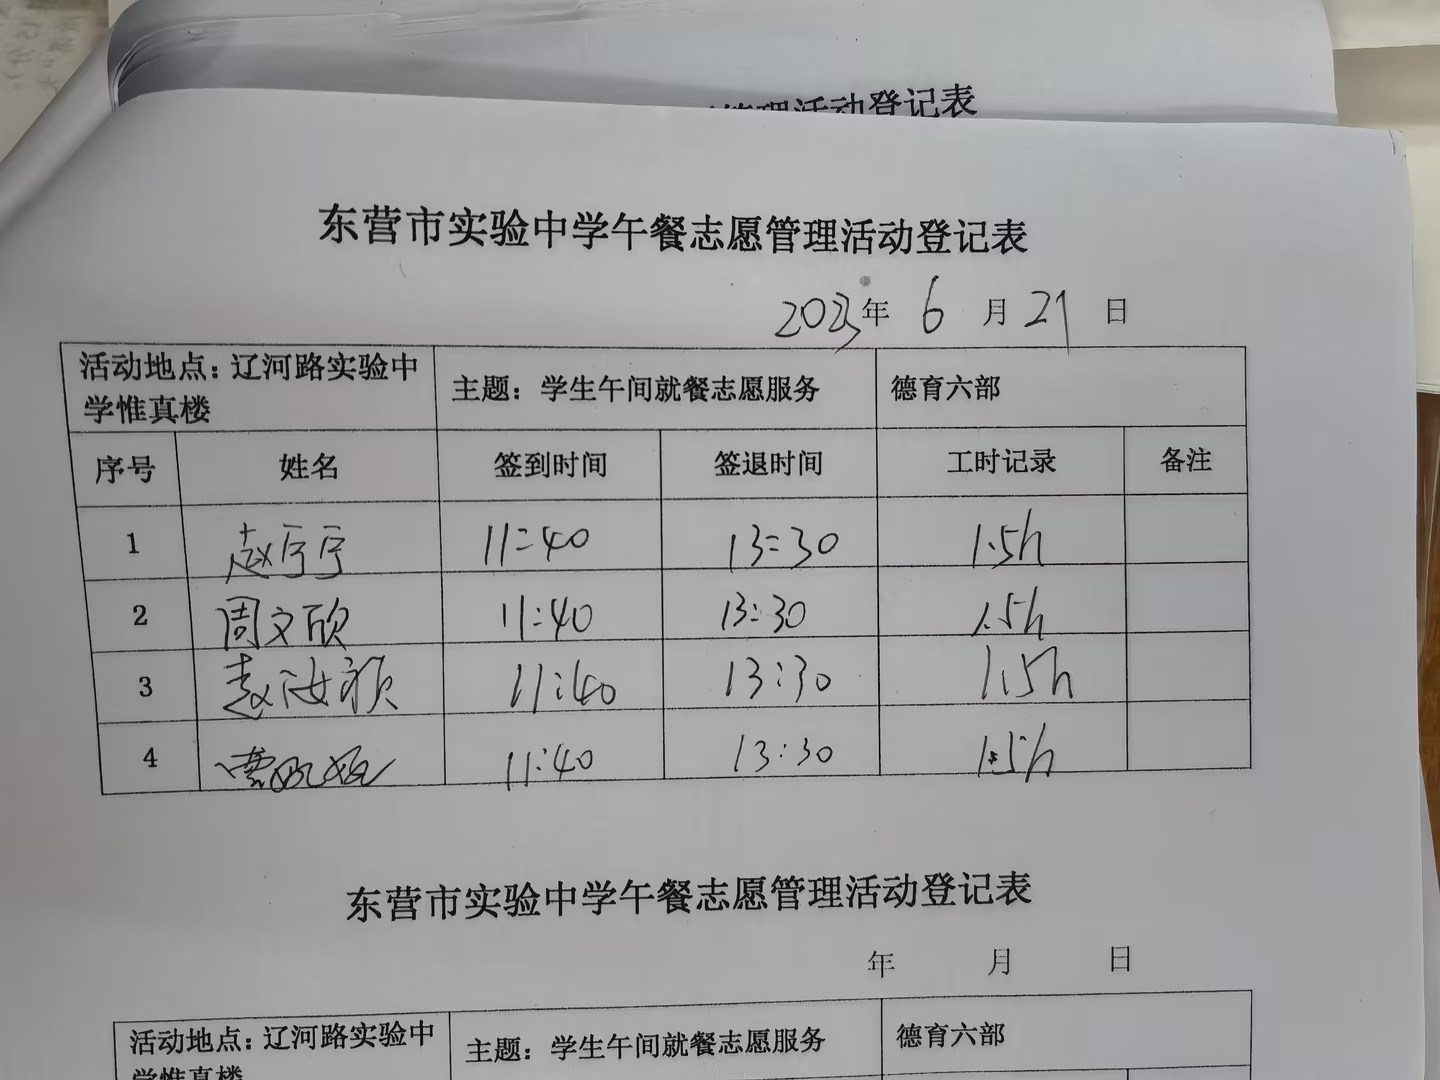 管理活动登记表
东营市实验中学午餐志愿管理活动登记表
2023年 6 月 21 日
活动地点：辽河路实验中学惟真楼 主题：学生午间就餐志愿服务 德育六部
序号 姓名 签到时间 签退时间 工时记录 备注
1 赵宁宁 11:40 13:30 1.5h
2 周文欣 11:40 13:30 1.5h
3 赵汝颖 11:40 13:30 1.5h
4 11:40 13:30 1.5h
东营市实验中学午餐志愿管理活动登记表
年 月 日
活动地点：辽河路实验中 主题：学生午间就餐志愿服务 德育六部
学惟真楼